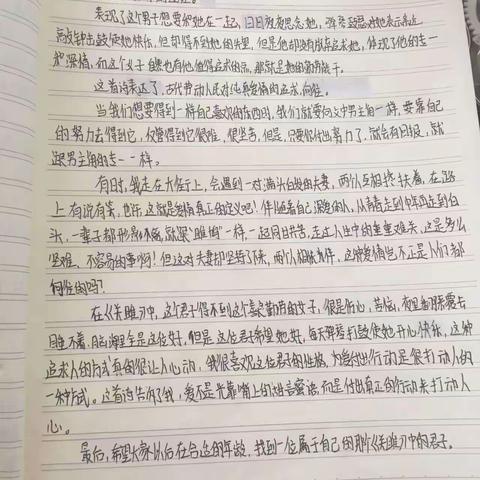 表现了这个男子想要和她在一起,日日夜夜思念她,弹琴鼓瑟对她表示亲近
敲钟击鼓使她快乐,但却得不到她的芳心,但是他却没有放弃追求她,体现了他的专一
和深情,而这个女子自然也有他值得追求的点,那就是她的勤劳能干。
这首诗表达了,古代劳动人民对纯真爱情的追求、向往。
当我们想要得到一样自己喜欢的东西时,我们就要向文中男主角一样,要靠自己
的努力去得到它,尽管得到它很难、很坐苦,但是,只要你付出努力了,就会有回报,就
跟男主角的专一一样。
有时,我走在大街上,会遇到一对满头白发的夫妻,两个人互相搀扶着,在路
上有说有笑,也许,这就是爱情真正的定义吧!伴随着自己深爱的人,从青春走到年迈走到白
头,一辈子都形影不离,就像"雎鸠"一样,一起同甘共苦,走过人生中的重重难关,这是多么
坚难、不容易的事啊!但这对夫妻却坚持了下来,两个人相依为伴,这份爱情岂不正是人们都
向往的吗?
在《关雎》中,这个君子得不到这个善良勤劳的女子,很是伤心、苦恼,夜里翻来覆去
睡不着,脑海里全是这位女子,但是这位君子希望她好,每天弹琴打鼓使她开心快乐,这种
追求人的方式真的很让人心动,我很喜欢这位君子的性格,为爱付出行动是很打动人的
一种方式。这首诗告诉了我,爱不是光靠嘴上的甜言蜜语,而是付出真正的行动来打动人
心。
最后,希望大家以后在合适的年龄,找到一位属于自己的那《关雎》中的君子。